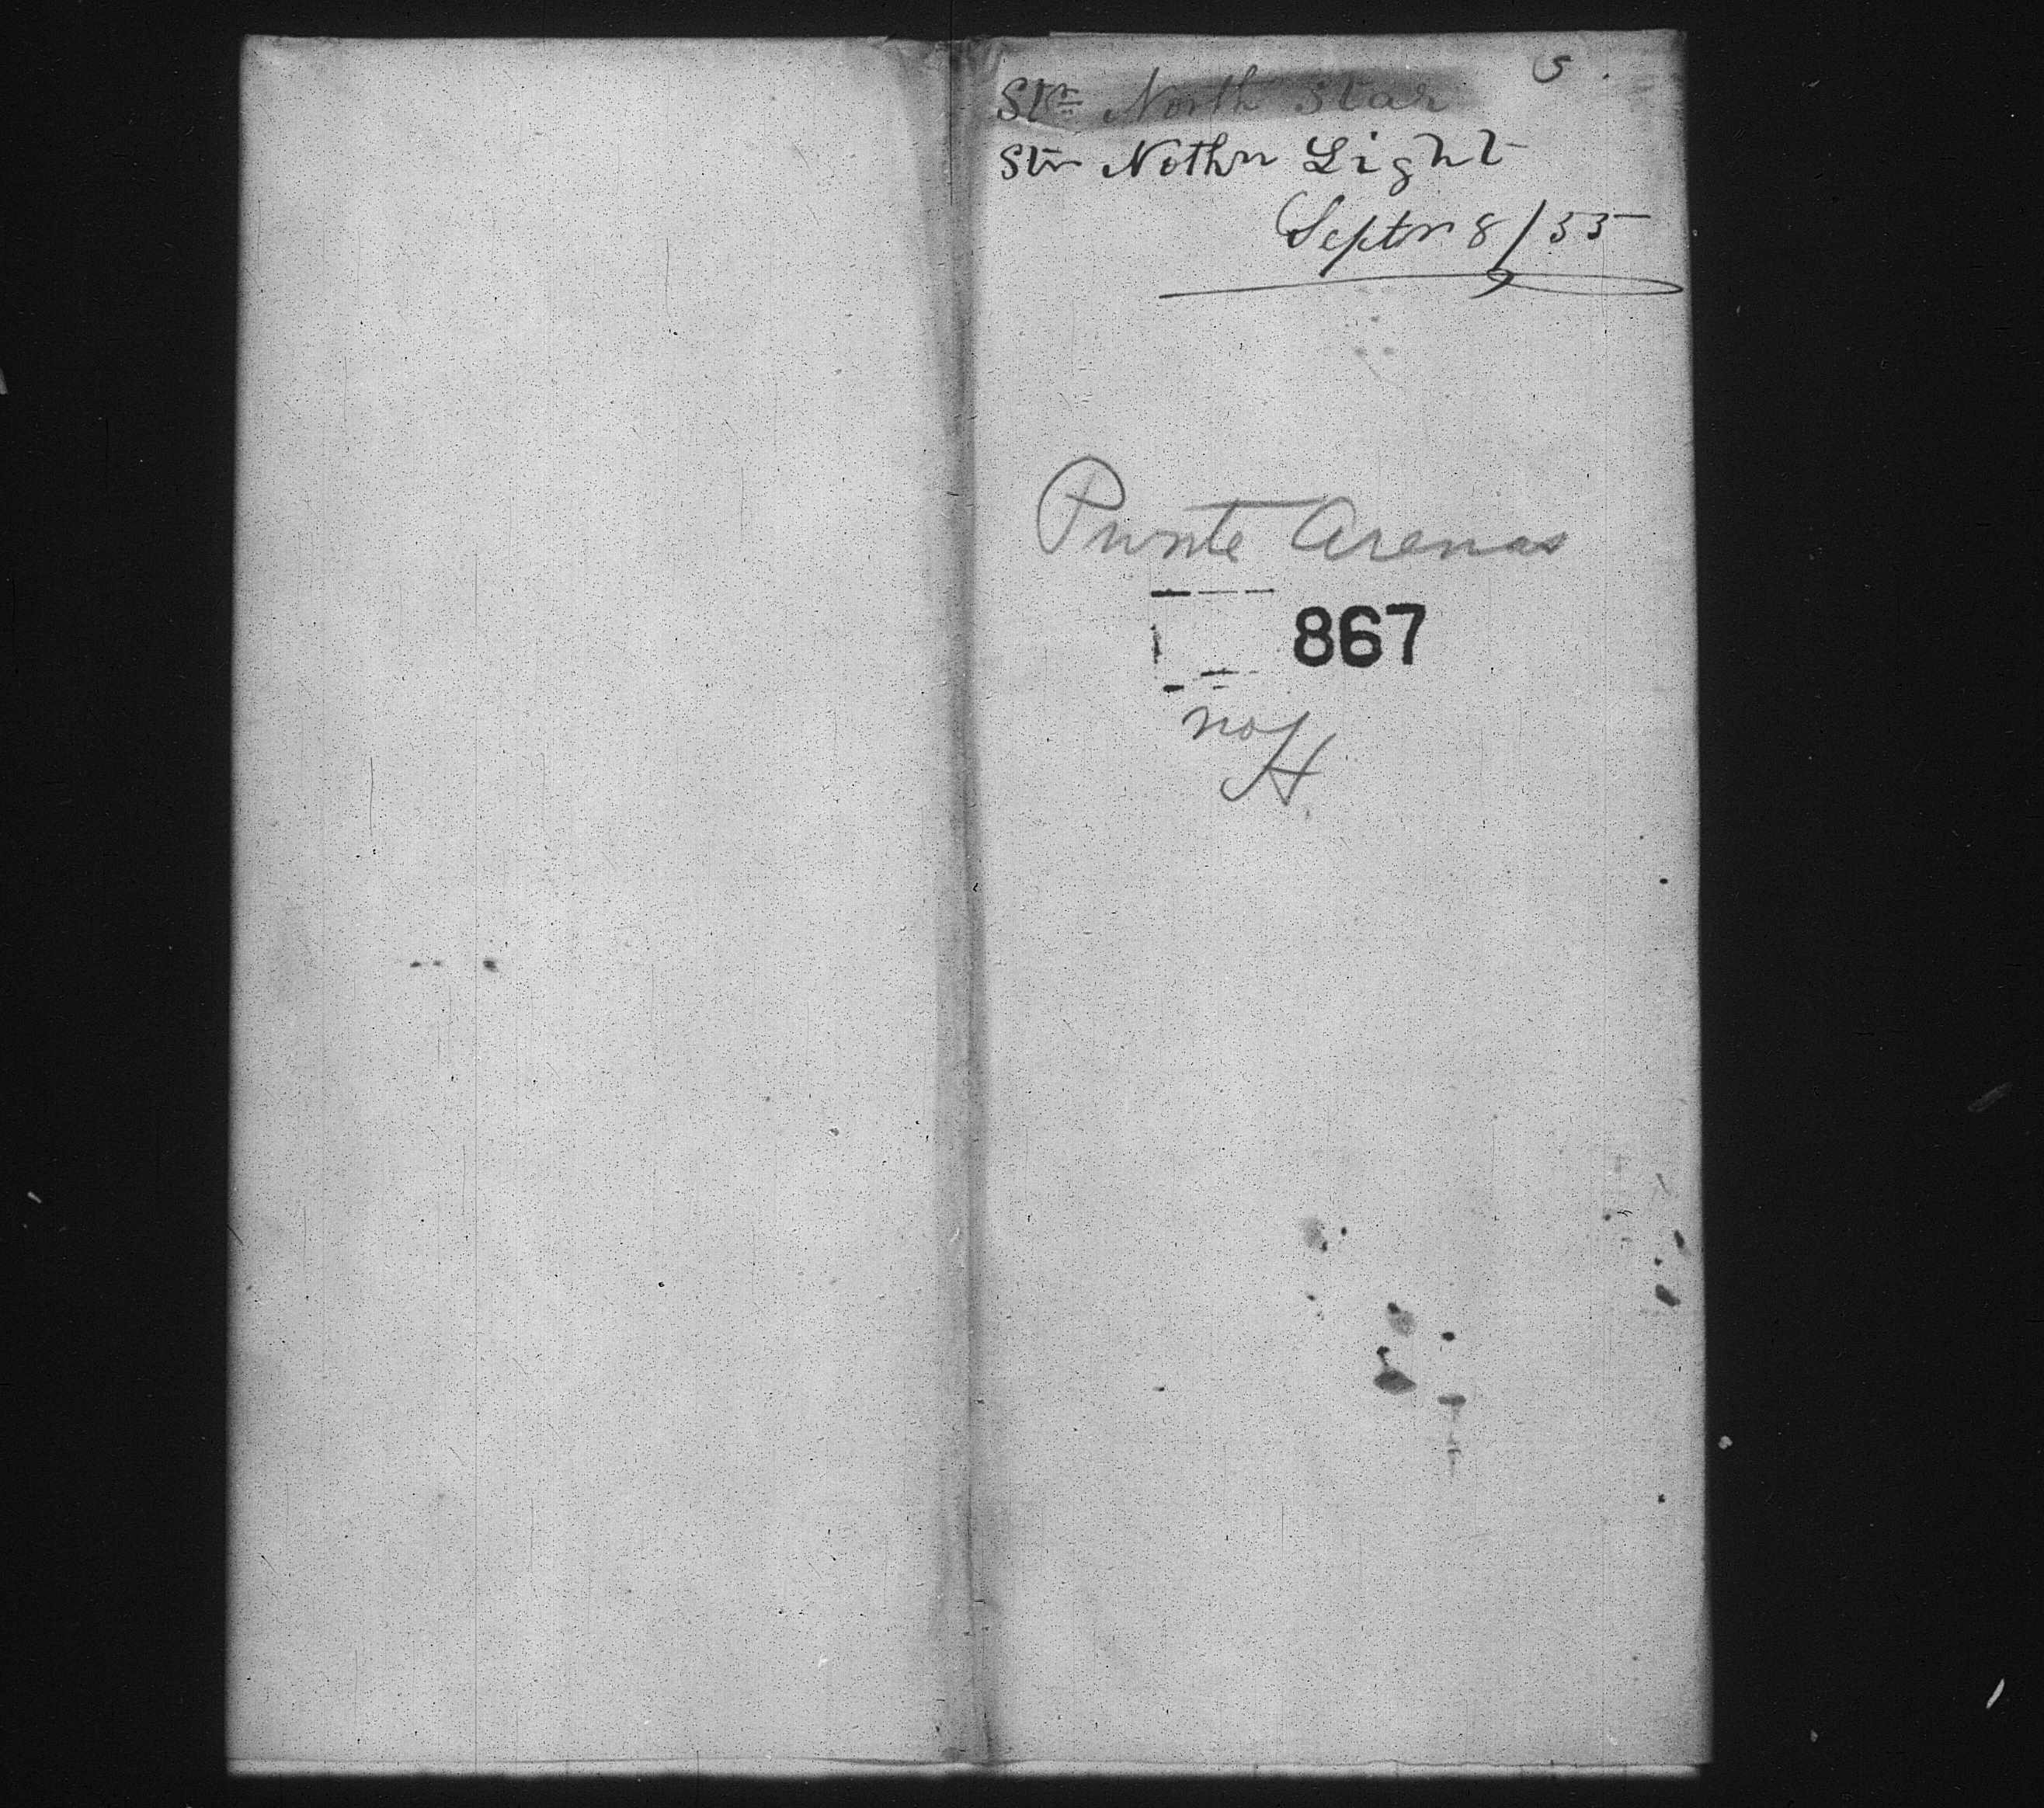 5.
Str North Star
Str Nothn Light
Septr 8/55
Punta Arenas
867
no
H